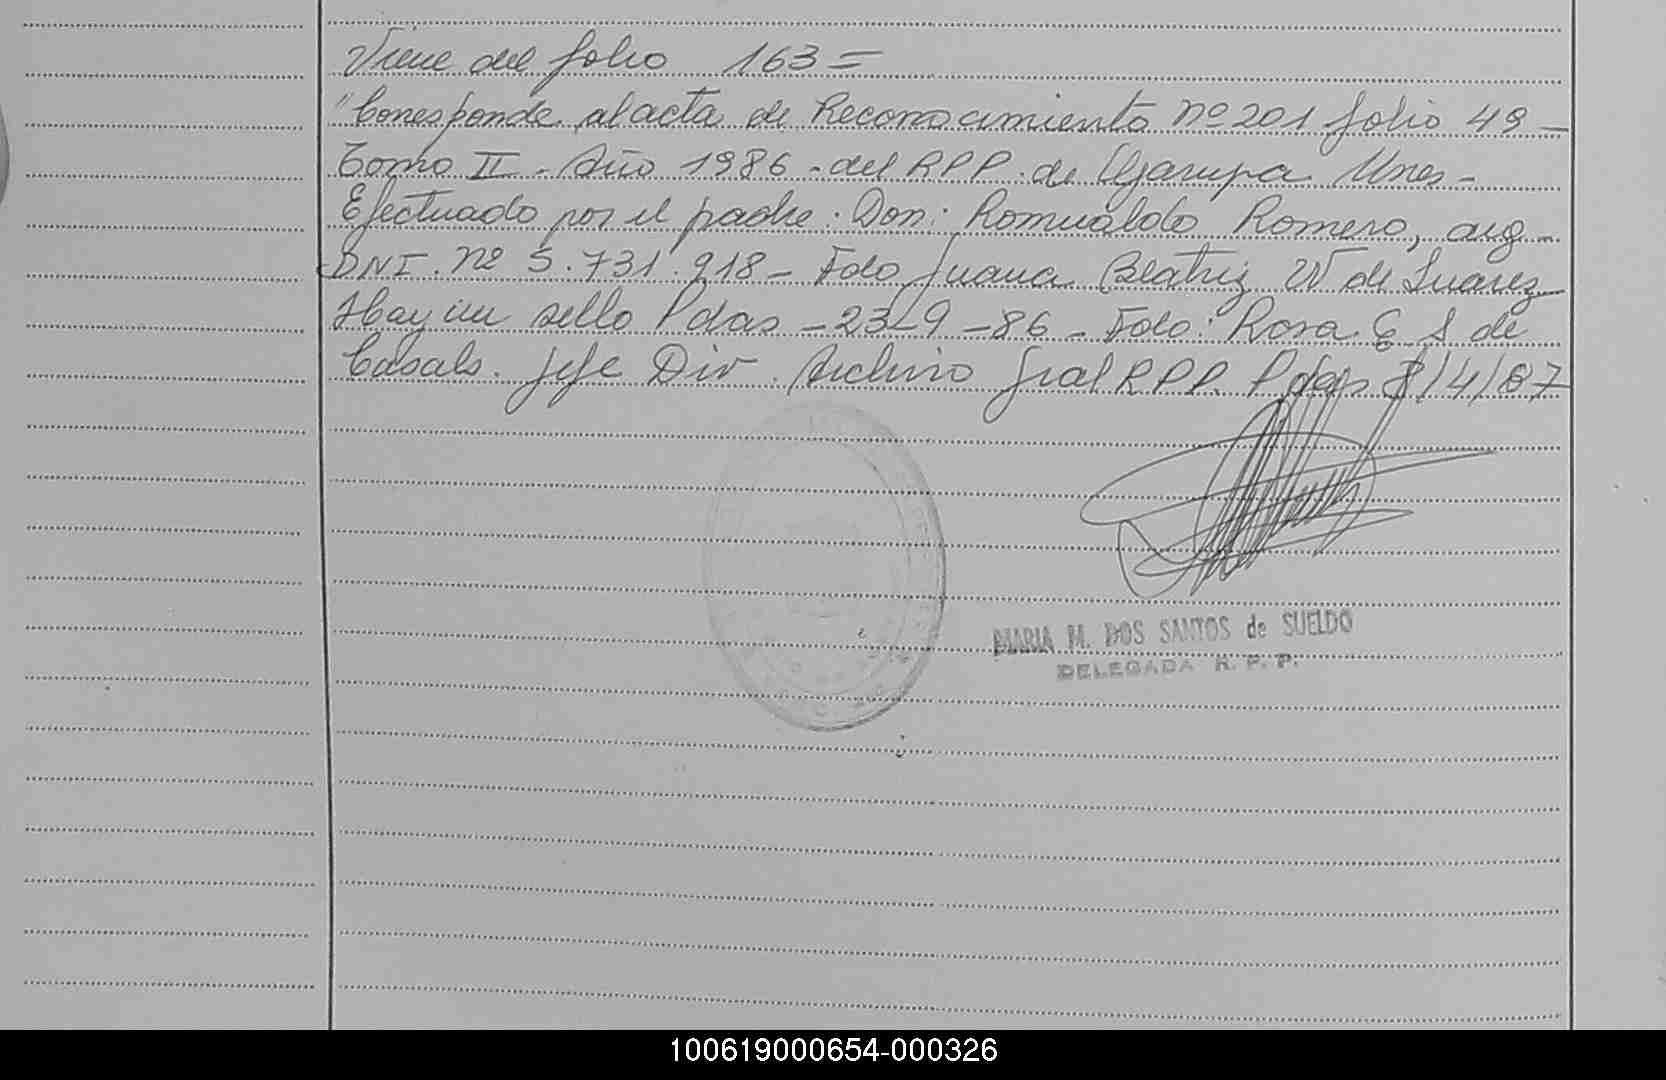 Viene del folio 163 =
"Corresponde al acta de Reconocimiento nº 201 folio 49 -
Tomo II - Año 1986 - del RPP. de Garupa Mnes -
Efectuado por el padre: Don: Romualdo Romero, arg -
DNI. nº 5.731.918 - Fdo Juana Beatriz W de Suarez
Hay un sello Pdas - 23-9-86 - Fdo: Rosa E S de
Casals. Jefe Div. Archivo Gral RPP. Pdas 8/4/87
MARIA M. DOS SANTOS de SUELDO
DELEGADA R. P. P.
100619000654-000326